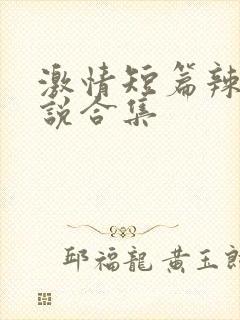 激情短篇辣
説合集
邱福龍 黄玉郎